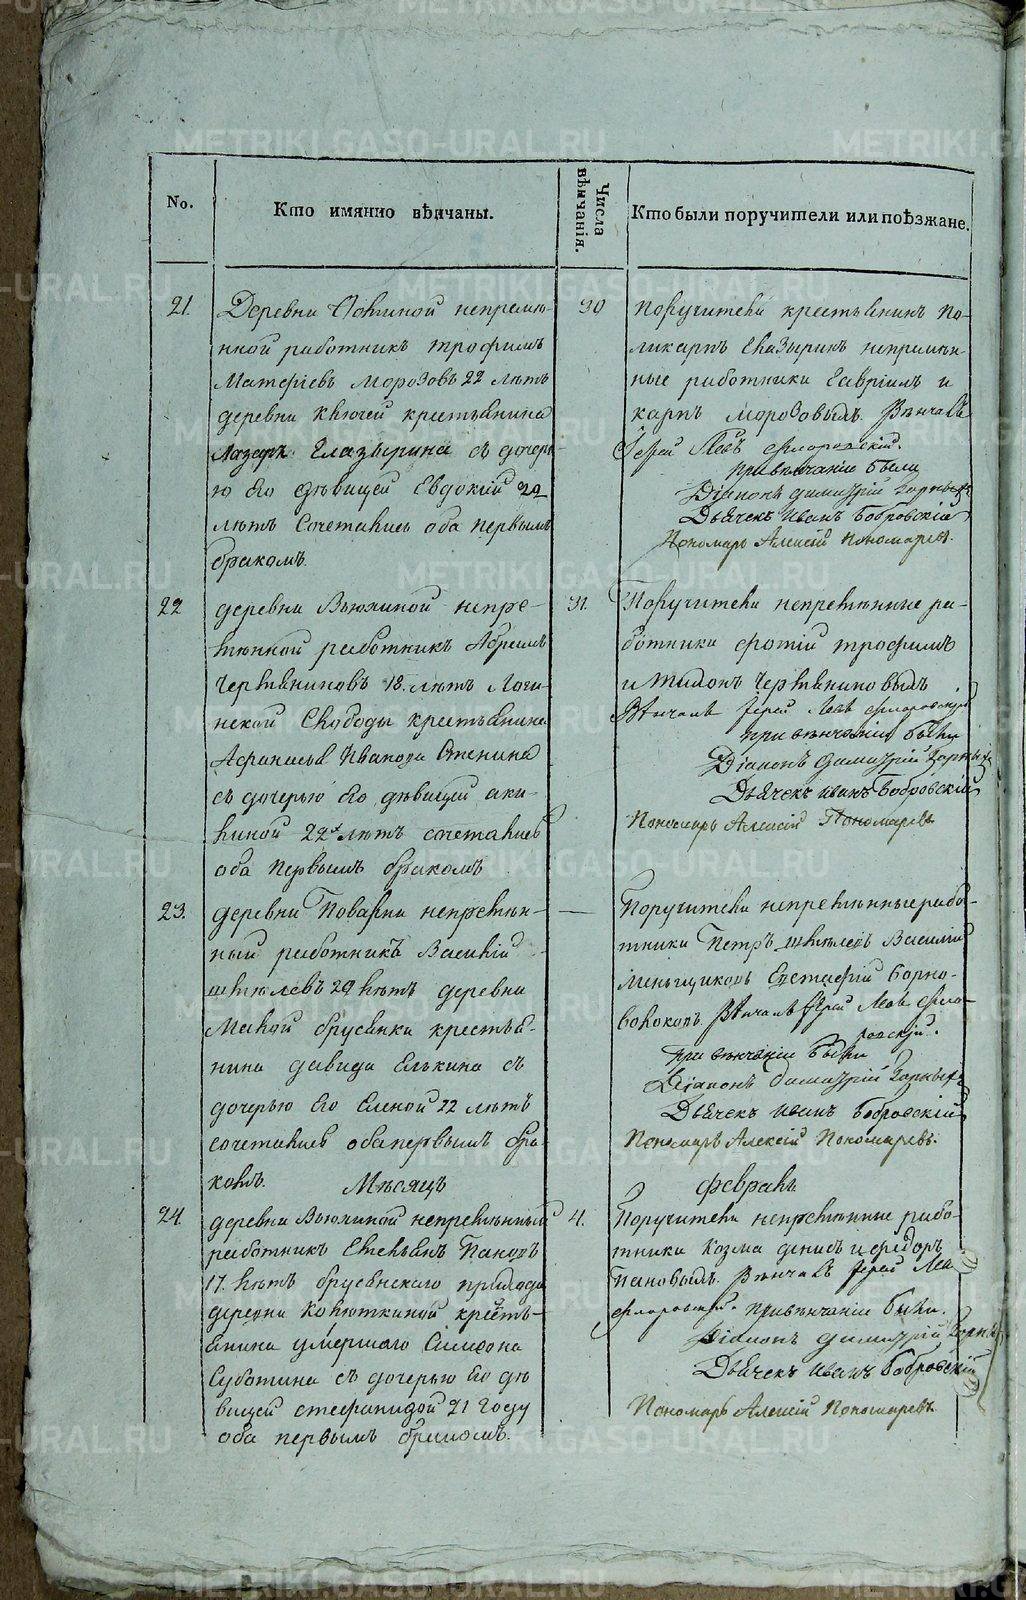 No.
Кто имянно вѣнчаны.
Числа вѣнчанія.
Кто были поручители или поѣзжане.
21.
Деревни непремѣ-
нной работникъ трофимъ
Матфіевъ морозовъ 22 лѣтъ
деревни ключей крестьянина
Лазаря Глазырина съ дочерь-
ю его дѣвицей Евдокіей 22
лѣтъ сочетались оба первымъ
бракомъ.
30
Поручители крестьянинъ по-
ликарпъ Глазыринъ непремѣн-
ные работники Гавріилъ и
карпъ морозовымъ. Вѣнчалъ
Іерей Левъ флоровскій.
при вѣнчаніи были
Діаконъ димитрій Горныхъ
Дьячекъ иванъ Бобровскій
Пономарь Алексій Пономаревъ.
22
деревни Вьюхиной непре-
мѣнной работникъ Абрамъ
Чермяниновъ 18. лѣтъ Логи-
новской Слободы крестьянина
Афанасья Иванова
съ дочерью его дѣвицей аки-
линой 22 лѣтъ сочетались
оба первымъ бракомъ
31.
Поручители непремѣнные ра-
ботники фотій трофимъ
и Тихонъ Чермяниновымъ
Вѣнчалъ Іерей Левъ флоровскій
при вѣнчаніи были
Діаконъ димитрій Горныхъ
Дьячекъ иванъ Бобровскій
Пономарь Алексій Пономаревъ
23.
деревни Поварни непремѣн-
ный работникъ Василій
шмелевъ 29 лѣтъ деревни
Малой брусянки крестья-
нина давида Елькина съ
дочерью его Еленой 22 лѣтъ
сочетались оба первымъ бра-
комъ.
—
Поручители непремѣнные рабо-
тники Петръ шмелевъ Василій
меньщиковъ Евстафій Борно-
волоковъ. Вѣнчалъ Іерей Левъ фло-
ровскій.
при вѣнчаніи были
Діаконъ димитрій Горныхъ
Дьячекъ иванъ Бобровскій
Пономарь Алексій Пономаревъ.
Мѣсяцъ февраль
24.
деревни Вьюхиной непремѣнный
работникъ Емельянъ Пановъ
17. лѣтъ брусянскаго прихода
деревни Колюткиной кресть-
янина умершаго Симеона
Суботина съ дочерью его дѣ-
вицей стефанидой 21 году
оба первымъ бракомъ.
4.
Поручители непремѣнные рабо-
тники Козма денисъ и федоръ
Пановымъ. Вѣнчалъ Іерей Левъ
флоровскій. при вѣнчаніи были.
Діаконъ димитрій Горныхъ
Дьячекъ иванъ Бобровскій
Пономарь Алексій Пономаревъ.
METRIKI.GASO-URAL.RU